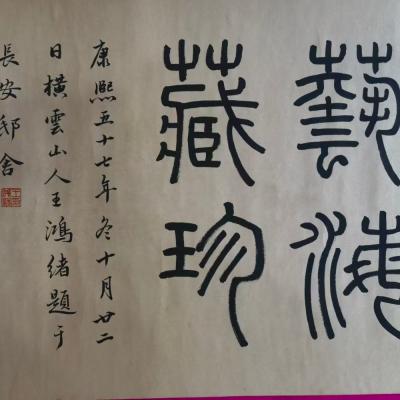 藝海
藏珍
康熙五十七年冬十月廿二
日橫雲山人王鴻緒題于
長安邸舍